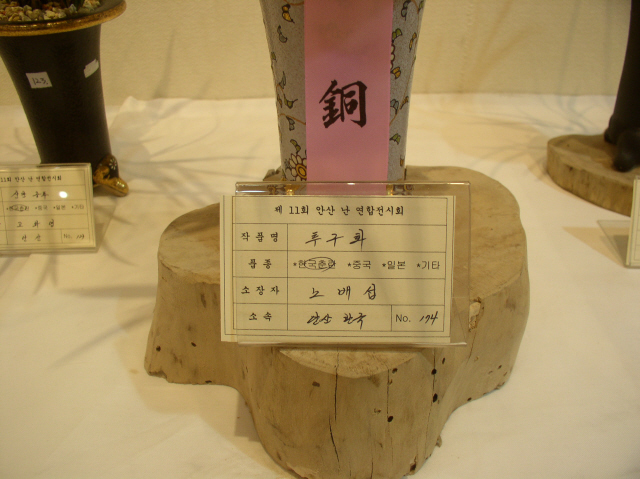 銅
제 11회 안산 난 연합전시회
작품명 투구화
품종 *한국춘란 *중국 *일본 *기타
소장자 노배섭
소속 안산 한국 No. 194
11회 안산 난 연합전시회
*중국 *일본 *기타
No.